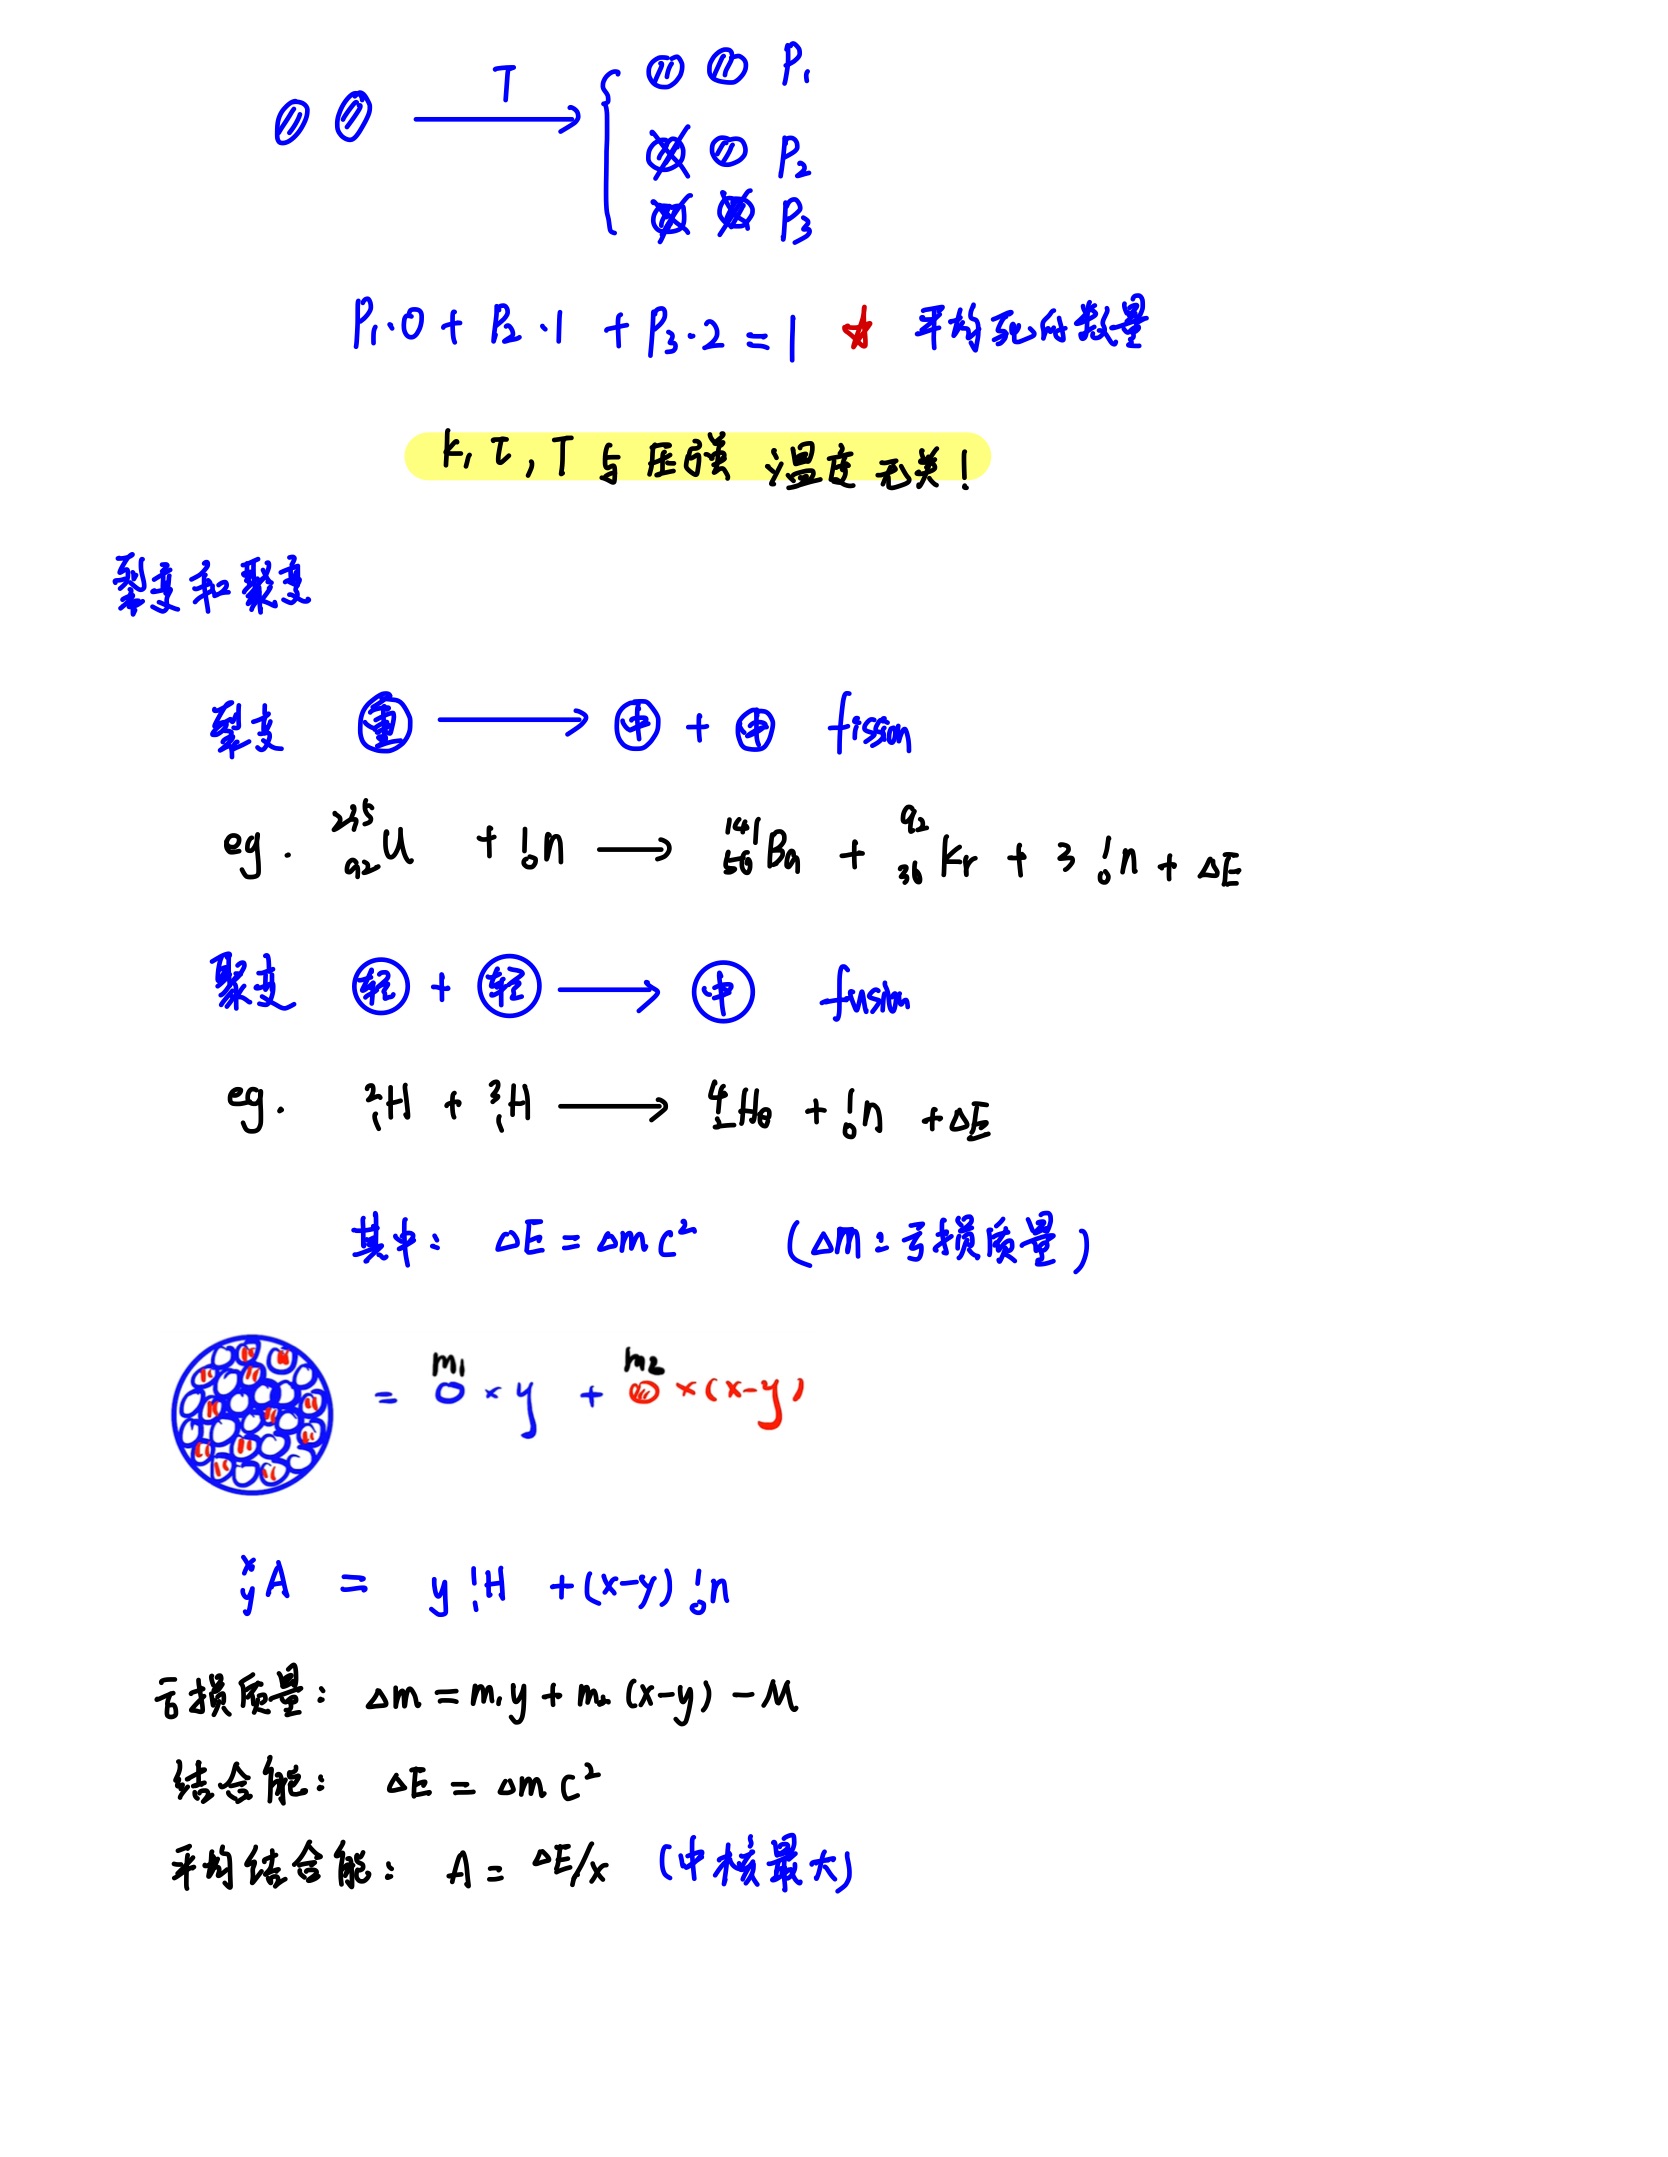 T
P₁
P₂
P₃
P₁·0 + P₂·1 + P₃·2 = 1 ☆ 平均死的数量
k, τ, T 与压强 温度无关!
裂变和聚变
裂变 重 ⟶ 中 + 中 fission
eg. ²³⁵₉₂U + ¹₀n ⟶ ¹⁴¹₅₆Ba + ⁹²₃₆Kr + 3 ¹₀n + ΔE
聚变 轻 + 轻 ⟶ 中 fusion
eg. ²₁H + ³₁H ⟶ ⁴₂He + ¹₀n + ΔE
其中: ΔE = Δmc² (Δm: 亏损质量)
m₁ m₂
= × y + × (x-y)
ˣᵧA = y ¹₁H + (x-y) ¹₀n
亏损质量: Δm = m₁y + m₂(x-y) - M
结合能: ΔE = Δmc²
平均结合能: A = ΔE/x (中核最大)